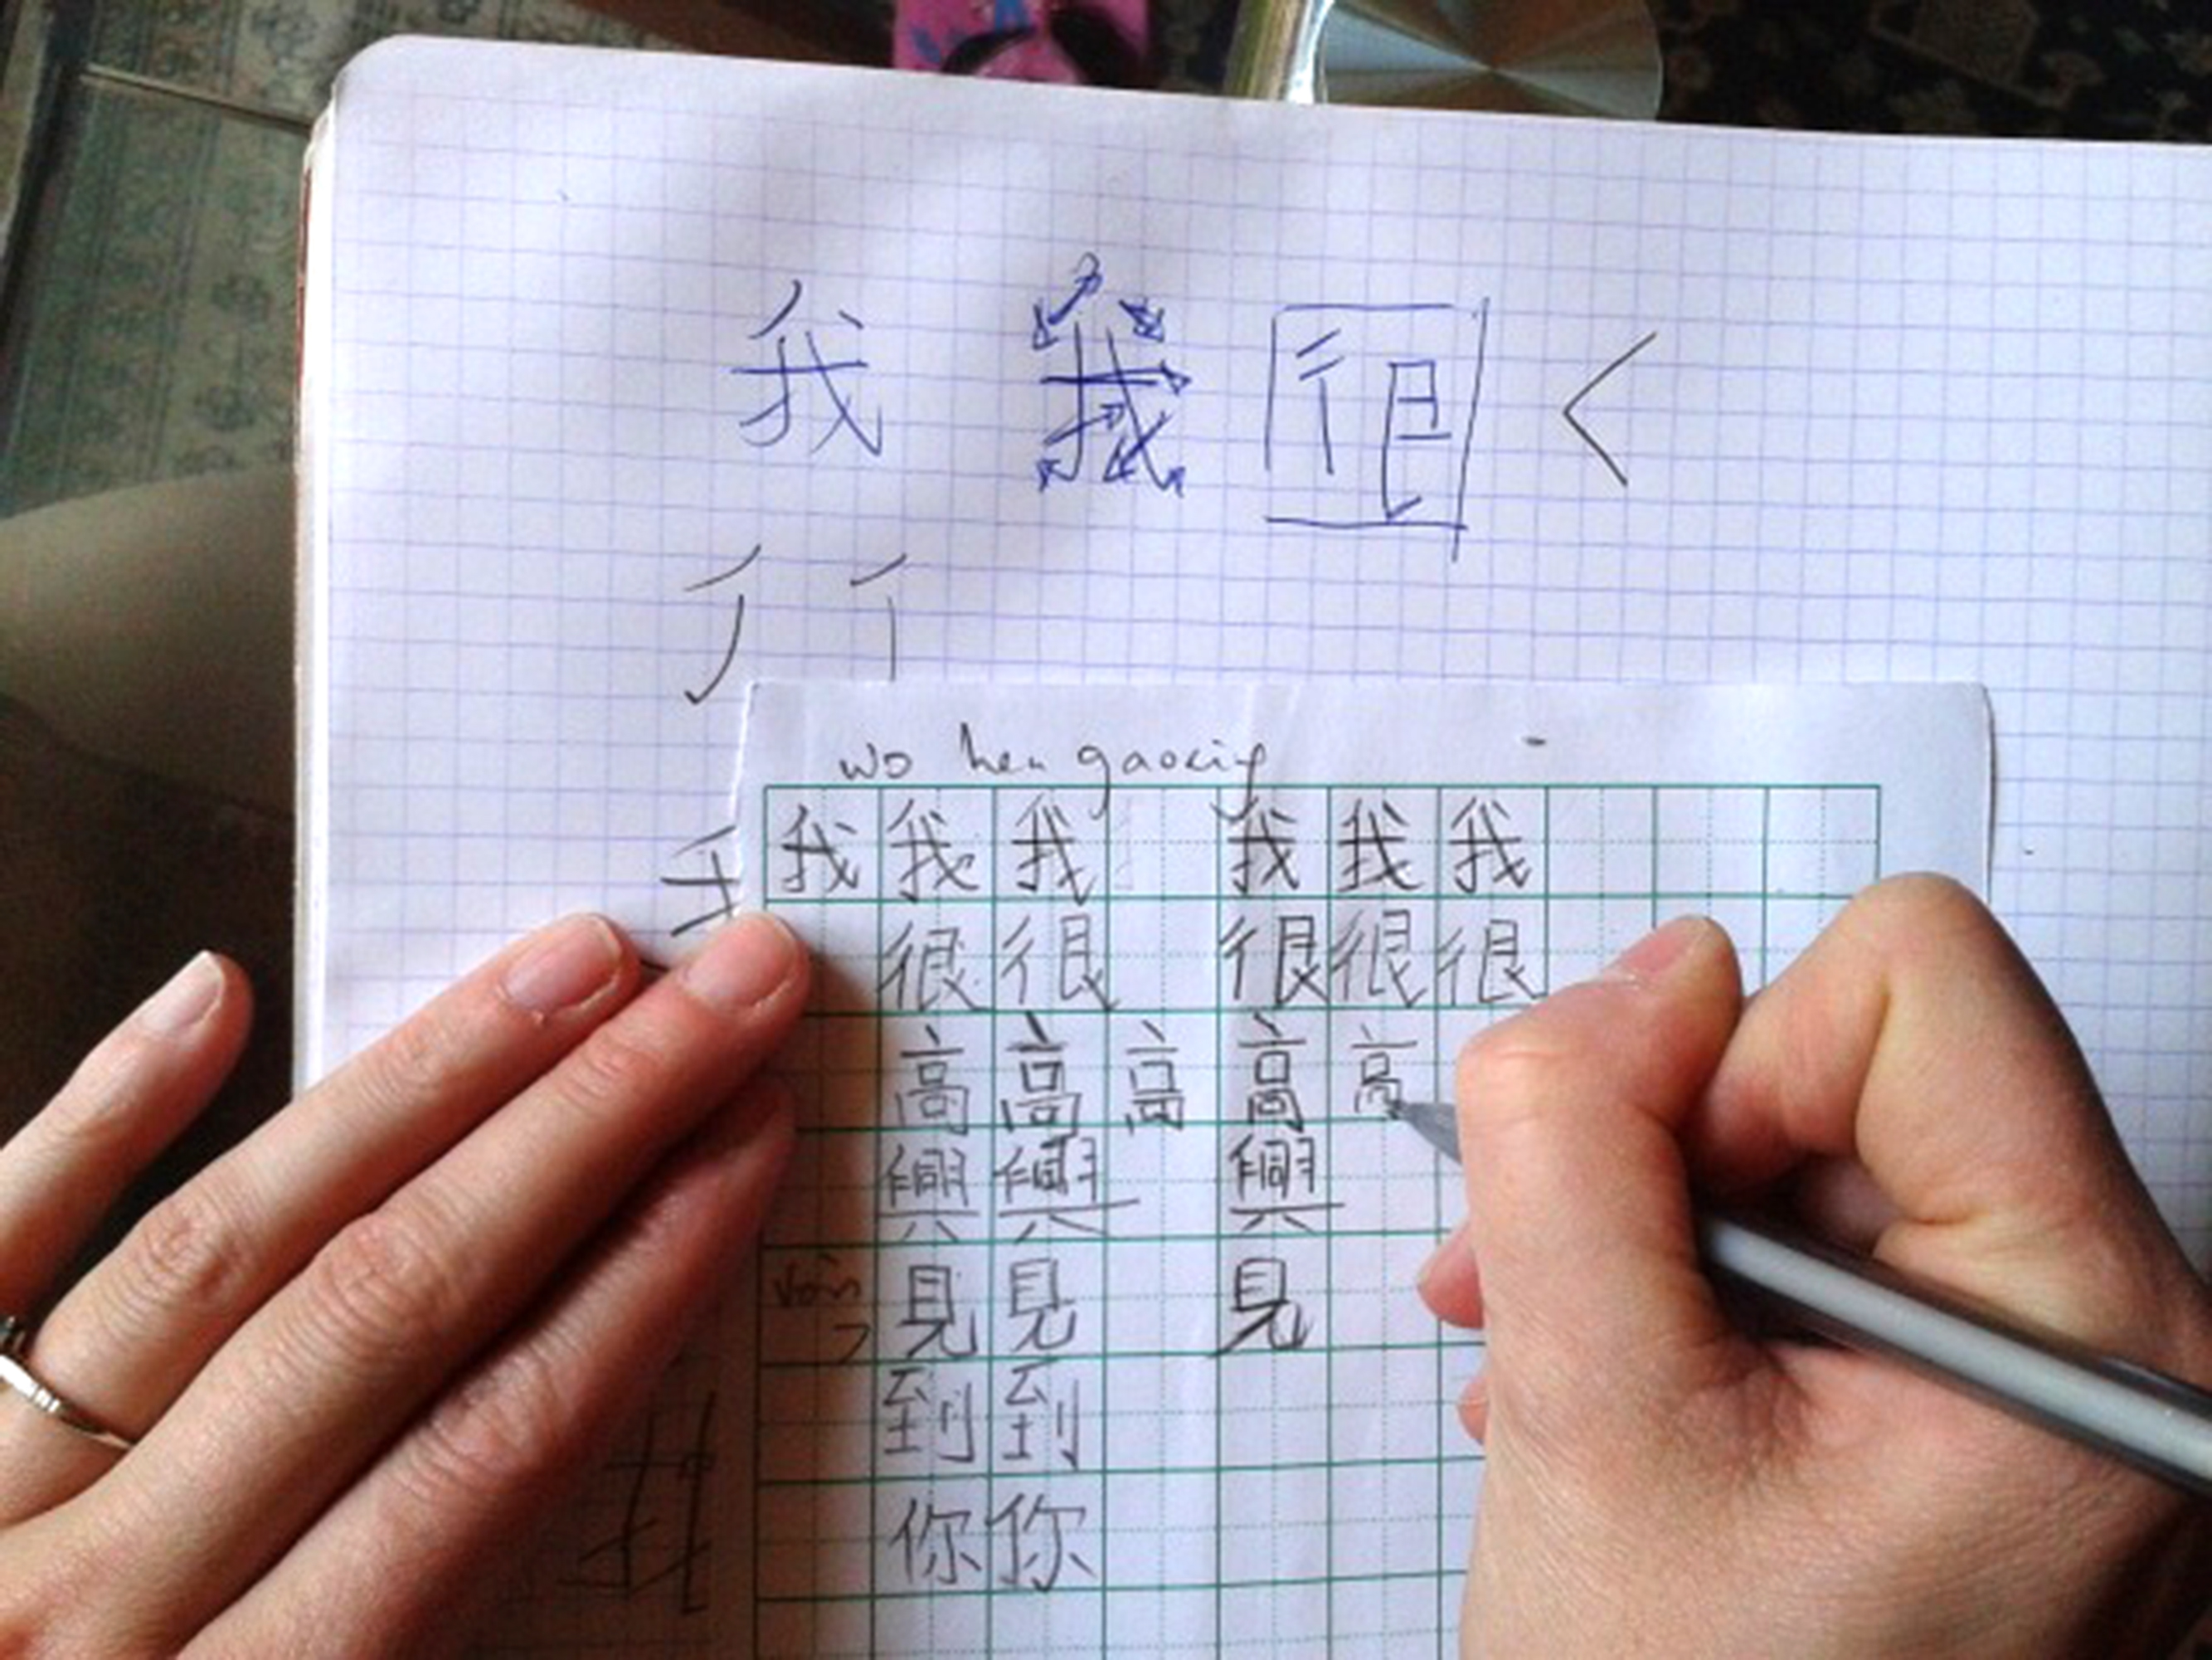 我 我 很 <
wo hen gaoxing
我 我 我 我 我 我
很 很 很 很 很
高 高 高 高 高
興 興 興
見 見 見
到 到
你 你